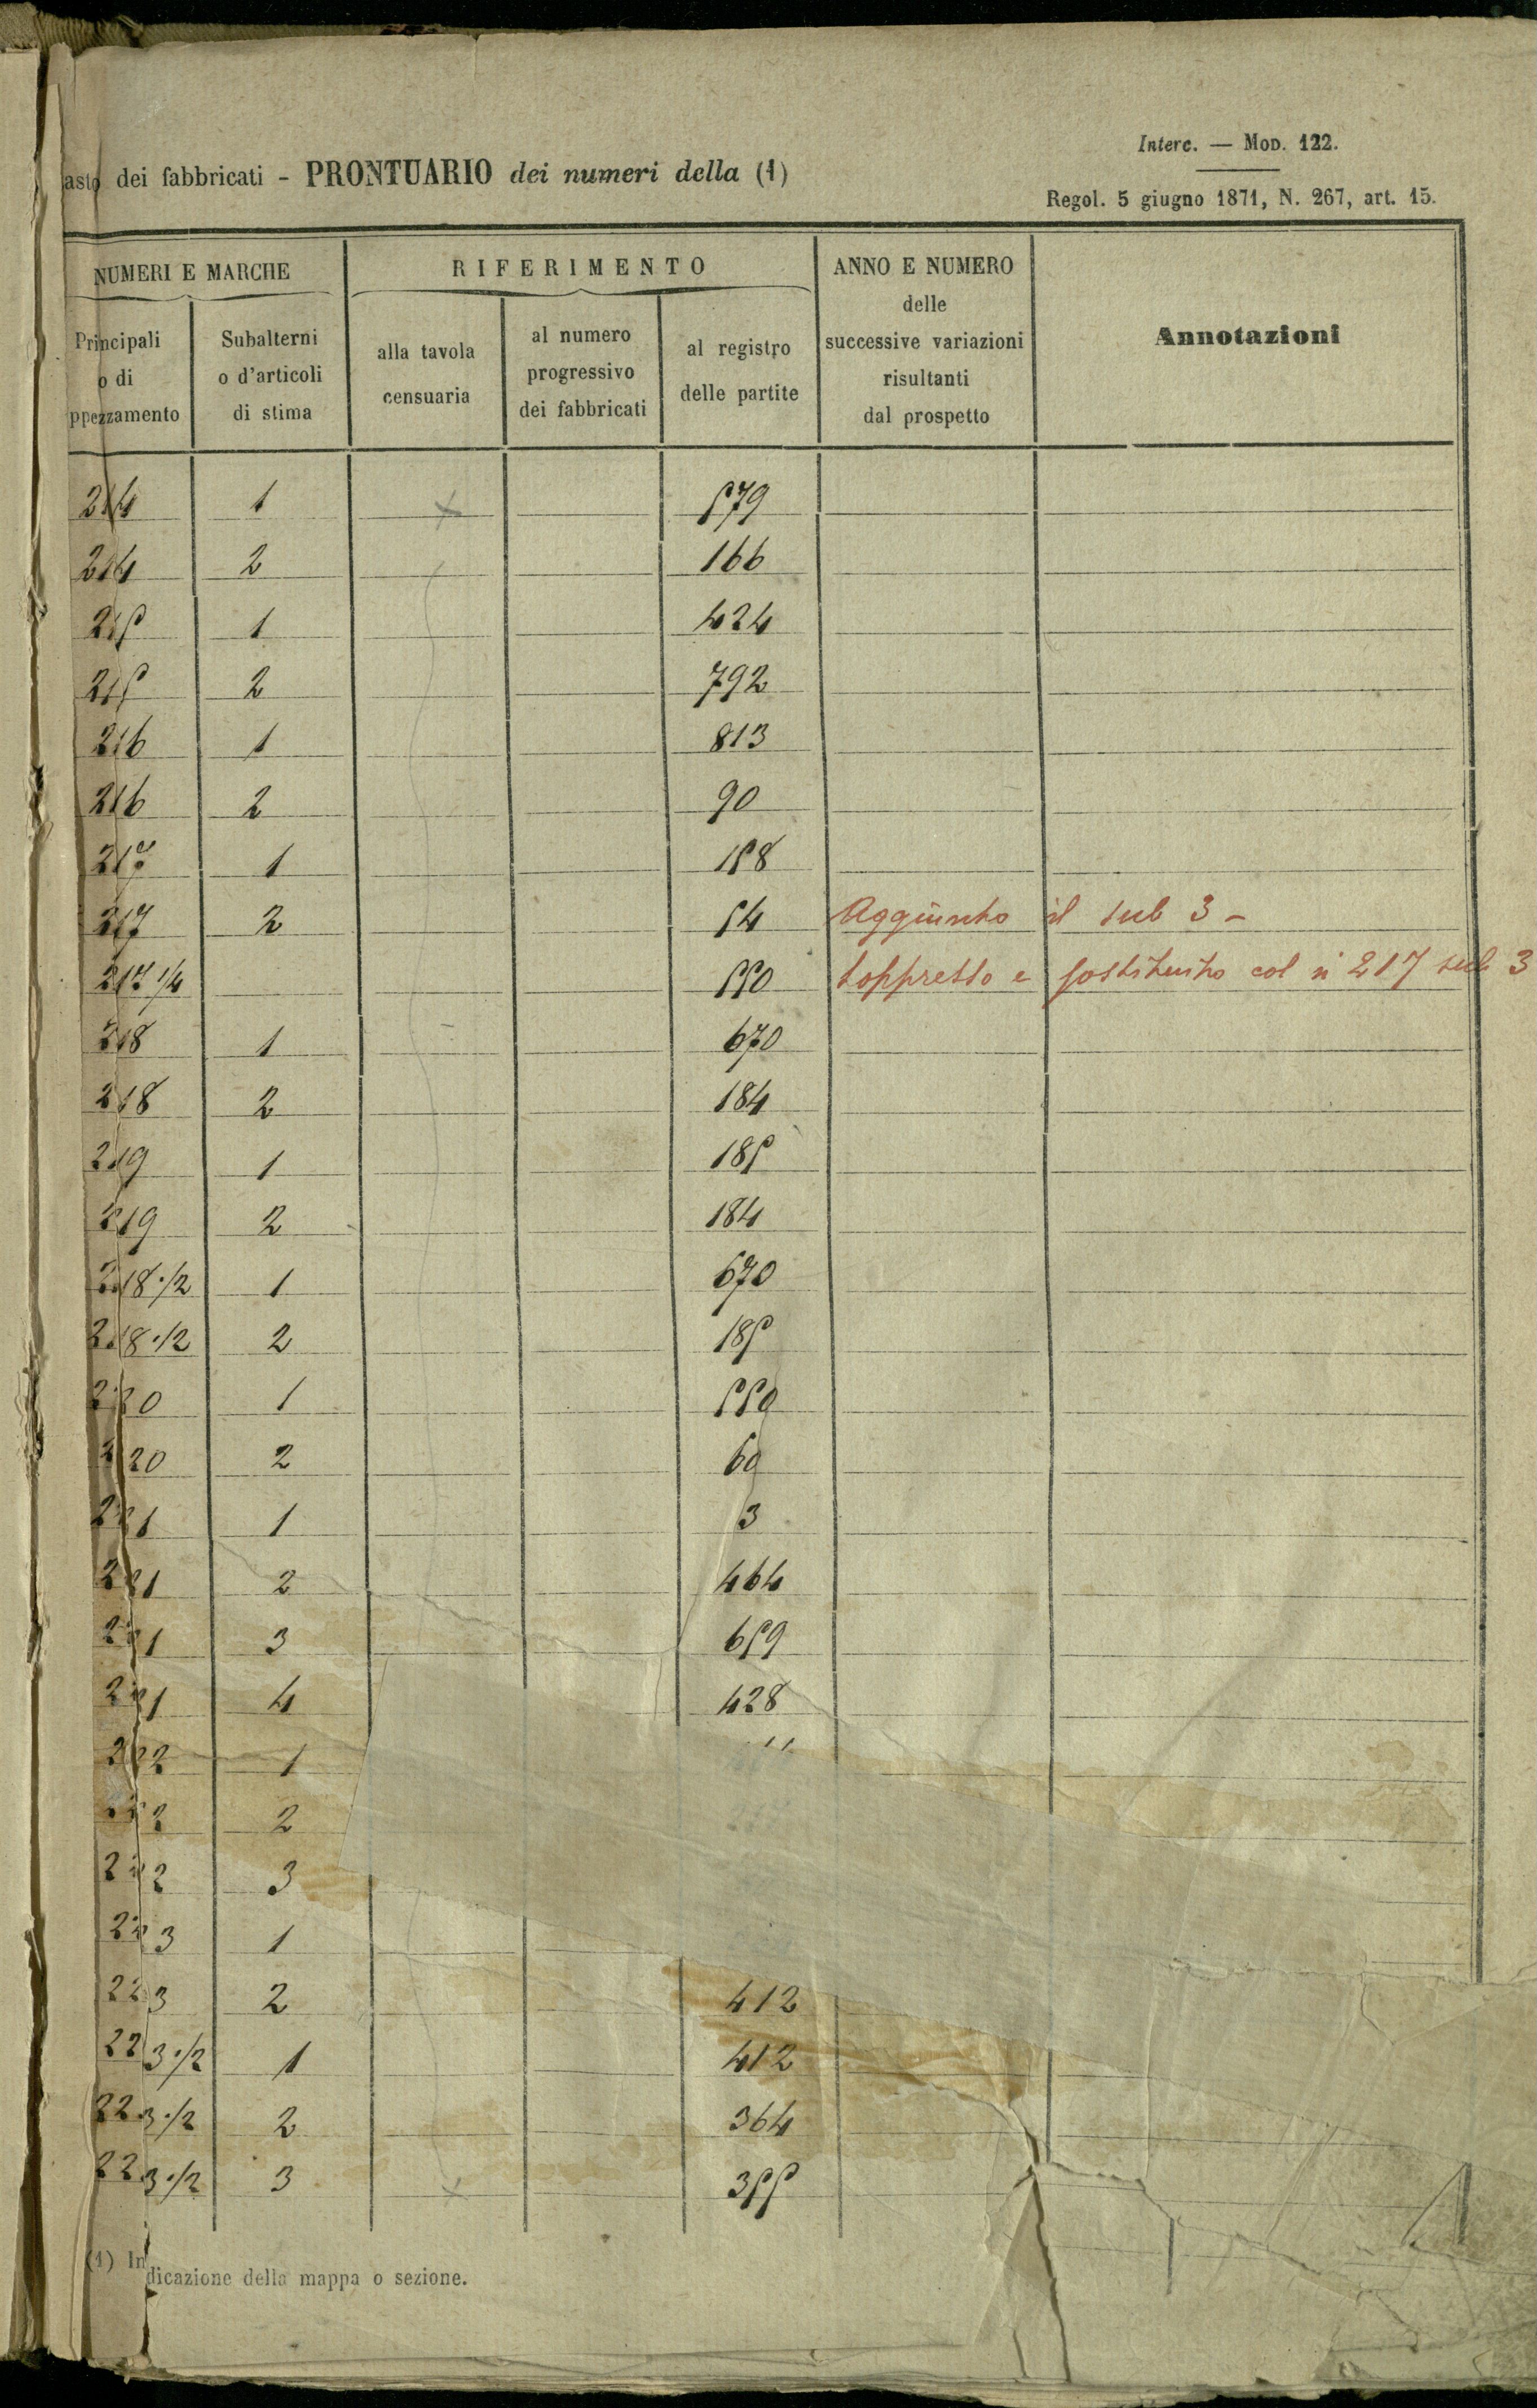 Interc. — Mod. 122.
asto dei fabbricati - PRONTUARIO dei numeri della (1)
Regol. 5 giugno 1871, N. 267, art. 15.
NUMERI E MARCHE RIFERIMENTO ANNO E NUMERO delle successive variazioni risultanti dal prospetto Annotazioni
Principali o di ppezzamento Subalterni o d'articoli di stima alla tavola censuaria al numero progressivo dei fabbricati al registro delle partite
214 1 579
214 2 166
215 1 424
215 2 792
216 1 813
216 2 90
217 1 158
217 2 54 Aggiunto il sub 3 -
217 1/4 550 soppresso e sostituito col n 217 sub 3
218 1 670
218 2 184
219 1 185
219 2 184
218 1/2 1 670
218 1/2 2 185
220 1 550
220 2 60
221 1 3
221 2 464
221 3 659
221 4 428
222 1
222 2
222 3
223 1
223 2 412
223 1/2 1 412
223 1/2 2 364
223 1/2 3 355
(1) Indicazione della mappa o sezione.